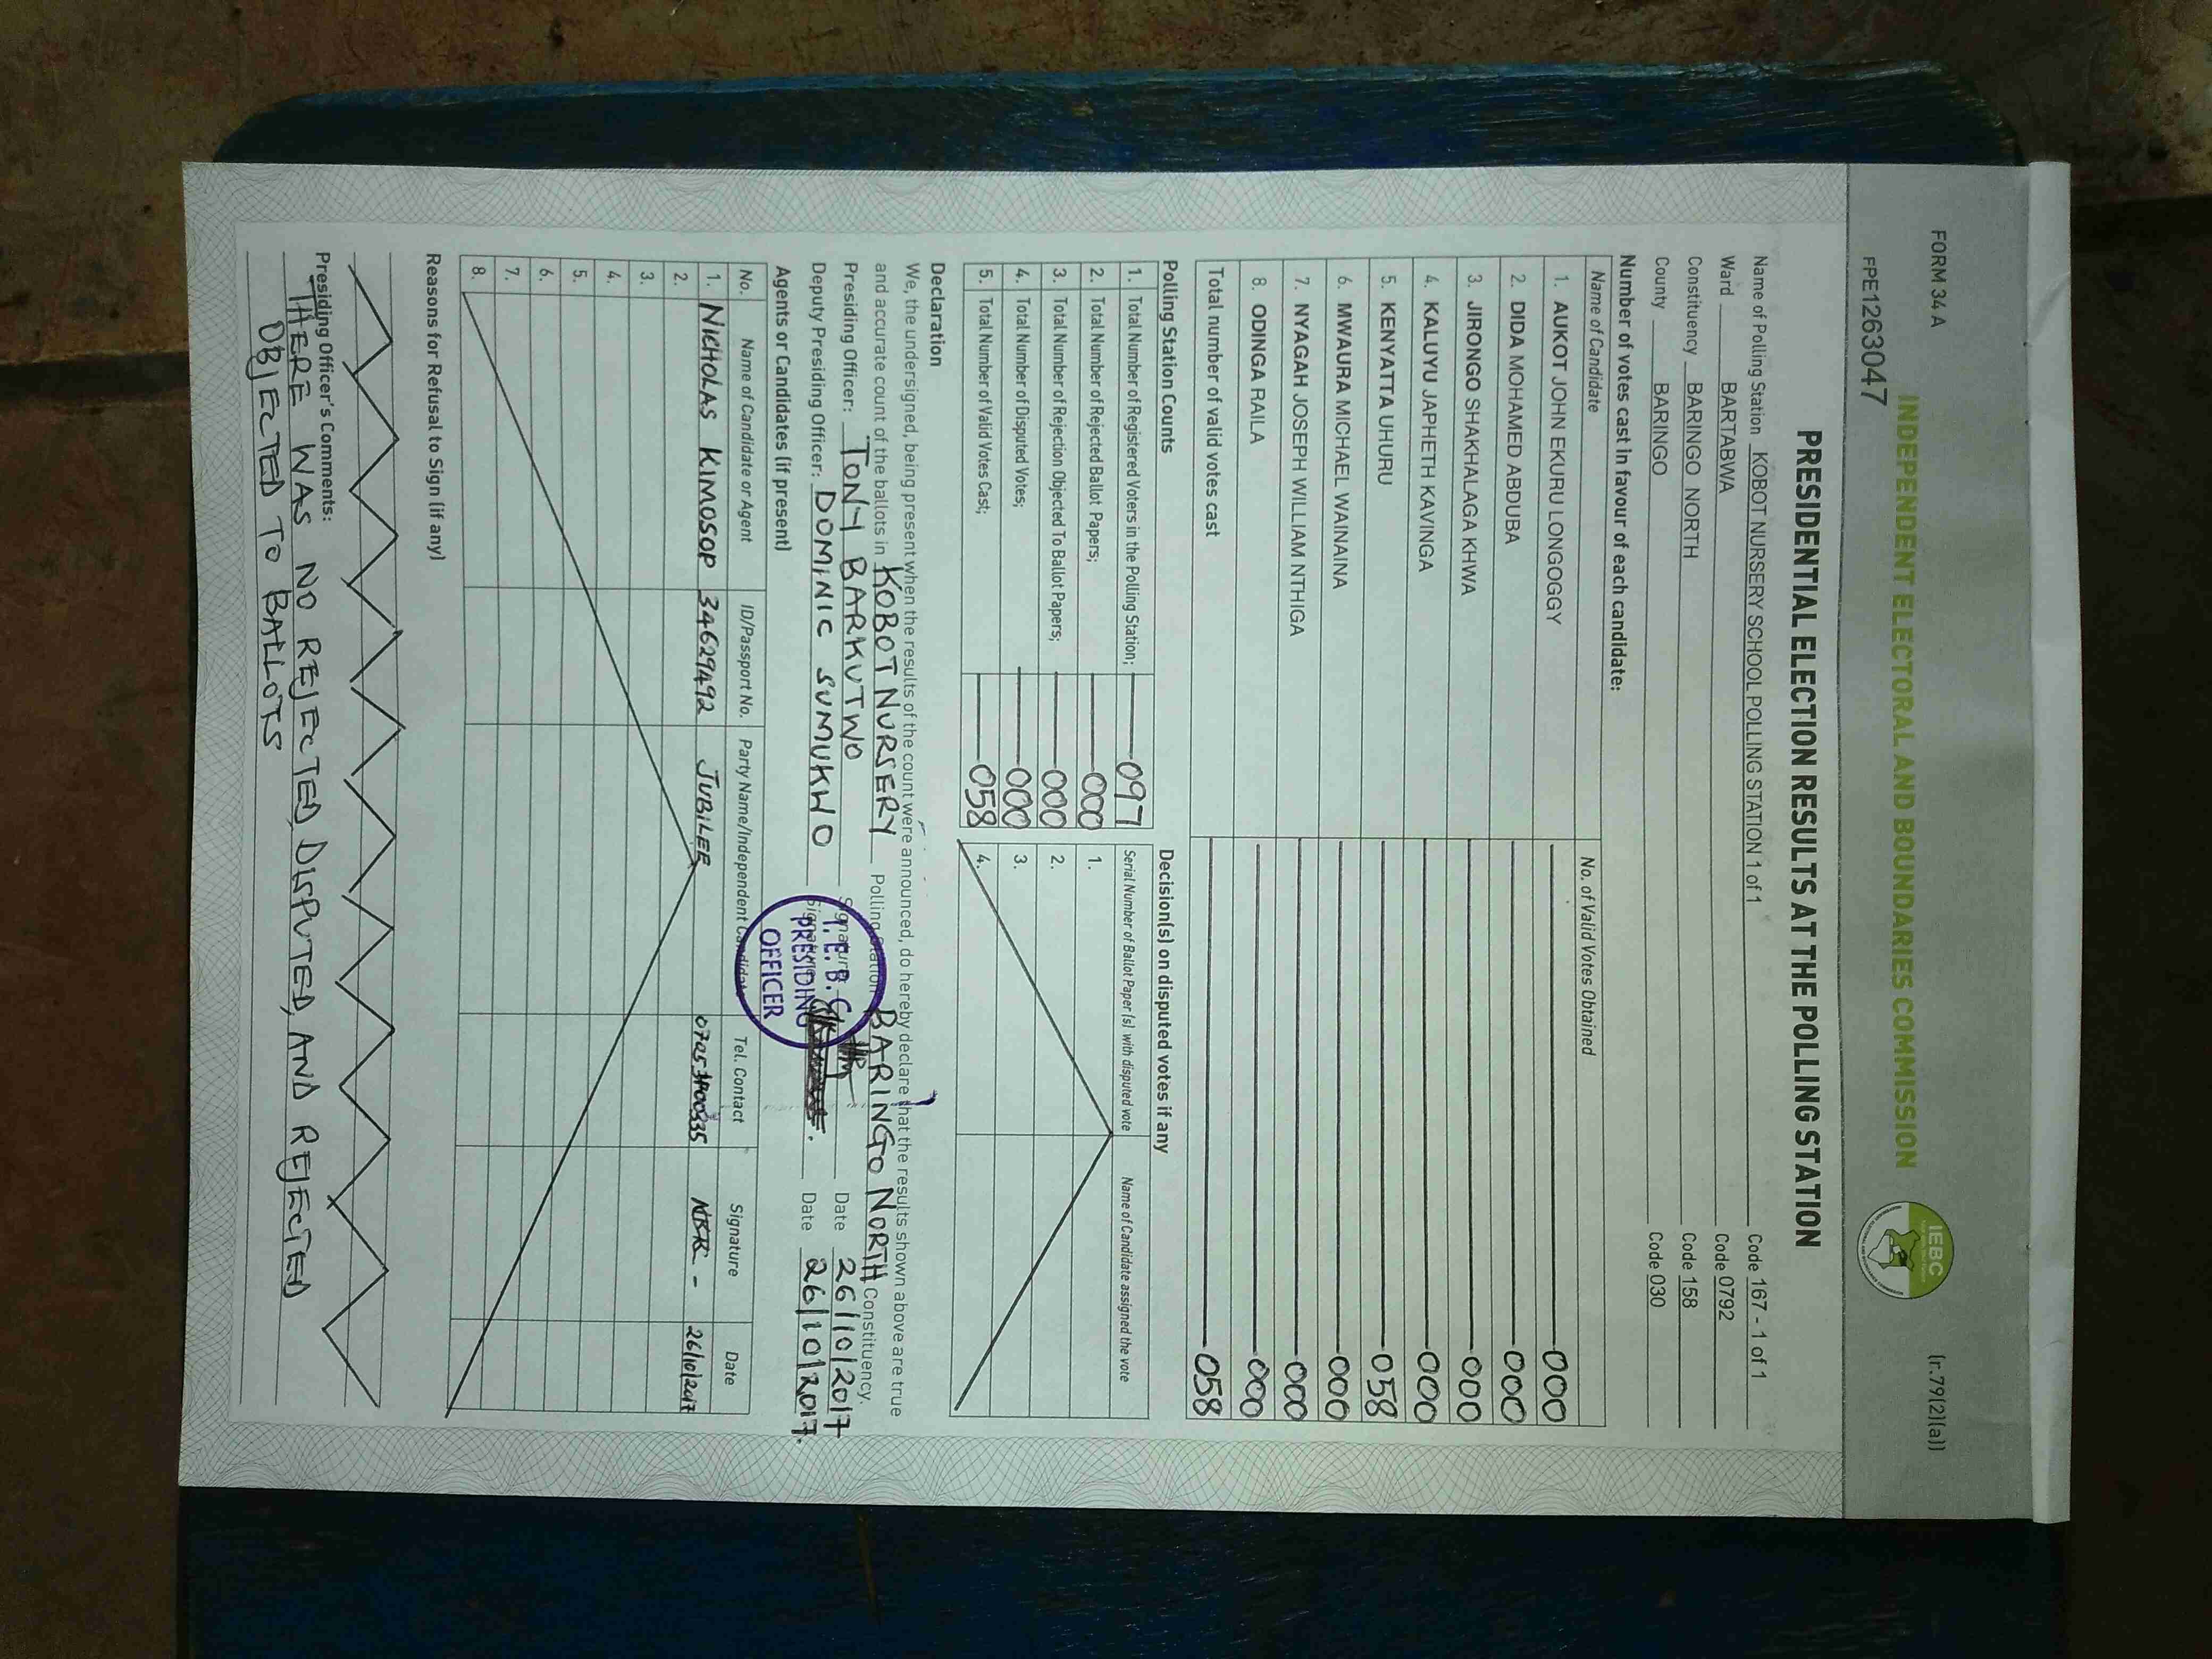 FORM 34 A
(r.79(2)(a))
INDEPENDENT ELECTORAL AND BOUNDARIES COMMISSION
IEBC
FPE1263047
PRESIDENTIAL ELECTION RESULTS AT THE POLLING STATION
Name of Polling Station KOBOT NURSERY SCHOOL POLLING STATION 1 of 1 Code 167 - 1 of 1
Ward BARTABWA Code 0792
Constituency BARINGO NORTH Code 158
County BARINGO Code 030
Number of votes cast in favour of each candidate:
Name of Candidate No. of Valid Votes Obtained
1. AUKOT JOHN EKURU LONGOGGY 000
2. DIDA MOHAMED ABDUBA 000
3. JIRONGO SHAKHALAGA KHWA 000
4. KALUYU JAPHETH KAVINGA 000
5. KENYATTA UHURU 058
6. MWAURA MICHAEL WAINAINA 000
7. NYAGAH JOSEPH WILLIAM NTHIGA 000
8. ODINGA RAILA 000
Total number of valid votes cast 058
Polling Station Counts Decision(s) on disputed votes if any
1. Total Number of Registered Voters in the Polling Station; 097 Serial Number of Ballot Paper(s) with disputed vote Name of Candidate assigned the vote
2. Total Number of Rejected Ballot Papers; 000 1.
3. Total Number of Rejection Objected To Ballot Papers; 000 2.
4. Total Number of Disputed Votes; 000 3.
5. Total Number of Valid Votes Cast; 058 4.
Declaration
We, the undersigned, being present when the results of the count were announced, do hereby declare that the results shown above are true
and accurate count of the ballots in KOBOT NURSERY Polling Station BARINGO NORTH Constituency.
Presiding Officer: TONY BARKUTWO Signature Date 26/10/2017
Deputy Presiding Officer: DOMINIC SUMUKWO Signature Date 26/10/2017.
I.E.B.C
PRESIDING
OFFICER
Agents or Candidates (if present)
No. Name of Candidate or Agent ID/Passport No. Party Name/Independent Candidate Tel. Contact Signature Date
1. NICHOLAS KIMOSOP 34629492 JUBILEE NKK - 26/10/2017
2.
3.
4.
5.
6.
7.
8.
Reasons for Refusal to Sign (if any)
Presiding Officer's Comments:
THERE WAS NO REJECTED, DISPUTED, AND REJECTED
OBJECTED TO BALLOTS